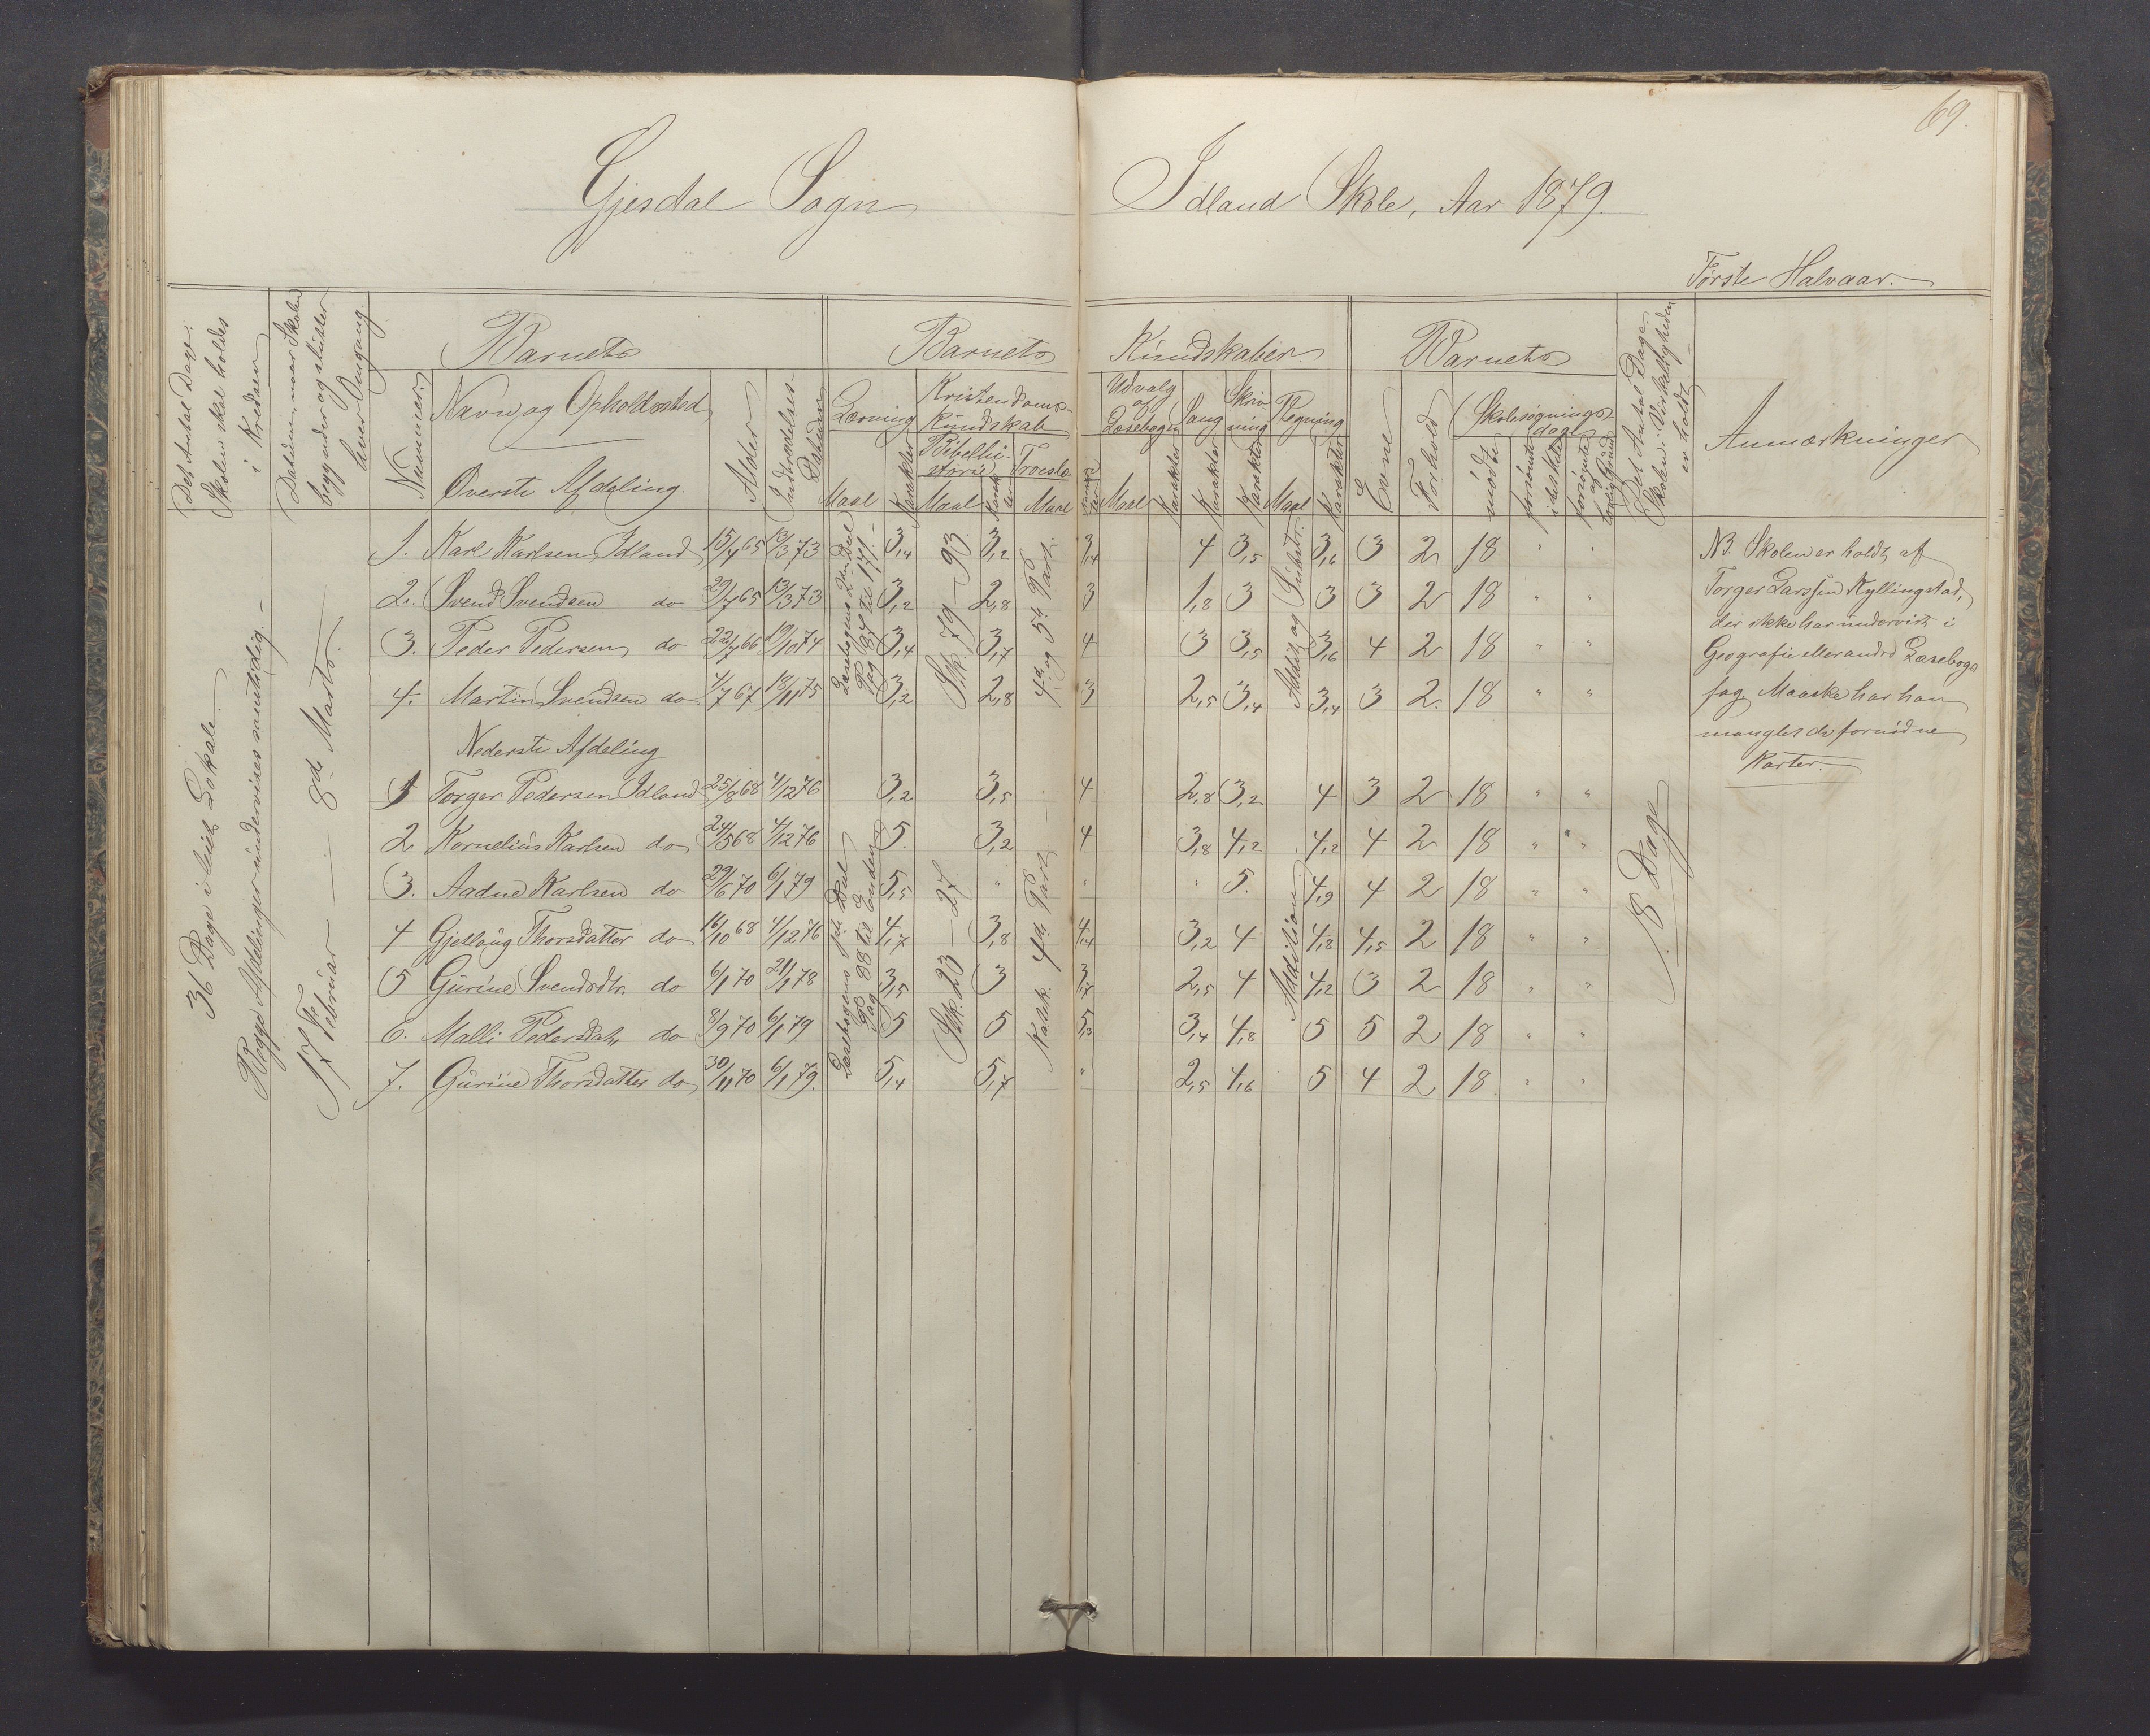 69.
Gjesdal Sogn
Idland Skole, Aar 1879.
Første Halvaar.
Det Antal Dage Skolen skal holdes i Kredsen
Datum, naar Skolen begynder og slutter hver Omgang.
Barnets
Barnets
Kundskaber.
Barnets
Det Antal Dage Skolen i Virkeligheden er holdt
Anmærkninger
Nummer.
Navn og Opholdssted
Alder
Indtrædelses-Datum
Læsning
Kristendoms-kundskab
Udvalg af Læsebogen
Sang
Skrivning
Regning
Evne
Forhold
Skolesøgnings-dage
Bibelhistorie
Troeslæ
mødte
forsømte
forsømte af lovlig Grund
Øverste Afdeling
Maal Karakter Maal Karakter Maal Maal Karakter Karakter Karakter Maal Karakter
36 Dage i leiet Lokale.
Begge Afdelinger undervises samtidig.
17 Februar — 8de Marts.
Læsebogens 2den Deel Pag 97 til 171.
Stk. 79 — 93
4de og 5te Part.
Addit. og Subtr.
1. Karl Karlsen Idland 15/4 65 13/3 73 3,4 3,2 3,4 4 3,5 3,6 3 2 18 " "
2. Svend Svendsen do 29/7 65 13/3 73 3,2 2,8 3 1,8 3 3 3 2 18 " "
3. Peder Pedersen do 22/7 66 19/10 74 3,4 3,7 4 3 3,5 3,6 4 2 18 " "
4. Martin Svendsen do 4/7 67 18/11 75 3,2 2,8 3 2,5 3,4 3,4 3 2. 18 " "
Nederste Afdeling
Læsebogens 1ste Deel Pag 88 til Enden
Stk. 23 — 27
Katek. 4de Part
Addition.
1 Torger Pedersen Idland 25/8 68 4/12 76 3,2 3,5 4 2,8 3,2 4 3 2 18 " "
2 Kornelius Karlsen do 24/5 68 4/12 76 5. 3,2 4 3,8 4,2 4,2 4 2 18 " "
3. Aadne Karlsen do 29/6 70 6/1 79 5,5 " " " 5. 4,9 4 2 18 " "
4 Gjetlaug Thorsdatter do 16/10 68 4/12 76 4,7 3,8 4,4 3,2 4 4,8 4,5 2 18 " "
5 Gurine Svendsdtr. do 6/1 70 21/1 78 3,5 3 3,7 2,5 4 4,2 3 2 18 " "
6. Malli Pedersdatr do 8/9 70 6/1 79 5 5 5,3 3,4 4,8 5 5 2 18 " "
7. Gurine Thorsdatter do 30/11 70 6/1 79. 5,4 5,7 " 2,5 4,6 5 4 2 18 " "
18 Dage
NB. Skolen er holdt af
Torger Larssen Kyllingstad,
der ikke har undervist i
Geografie eller andre Læsebogs
fag. Maaske har han
manglet de fornødne
Karter.